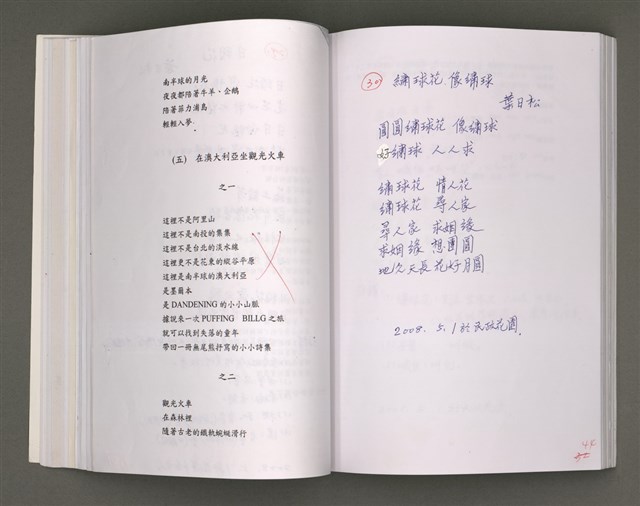 南半球的月光
夜夜都陪著牛羊、企鵝
陪著菲力浦島
輕輕入夢．
(五) 在澳大利亞坐觀光火車
之一
這裡不是阿里山
這裡不是南投的集集
這裡不是台北的淡水線
這裡更不是花東的縱谷平原
這裡是南半球的澳大利亞
是墨爾本
是 DANDENING 的小小山脈
據說來一次 PUFFING BILLG 之旅
就可以找到失落的童年
帶回一冊無尾熊抒寫的小小詩集
之二
觀光火車
在森林裡
隨著古老的鐵軌蜿蜒滑行
30 繡球花、像繡球
葉日松
圓圓繡球花 像繡球
好繡球 人人求
繡球花 情人花
繡球花 尋人家
尋人家 求姻緣
求姻緣 想團圓
地久天長花好月圓
2008. 5. 1 於民政花園.
44